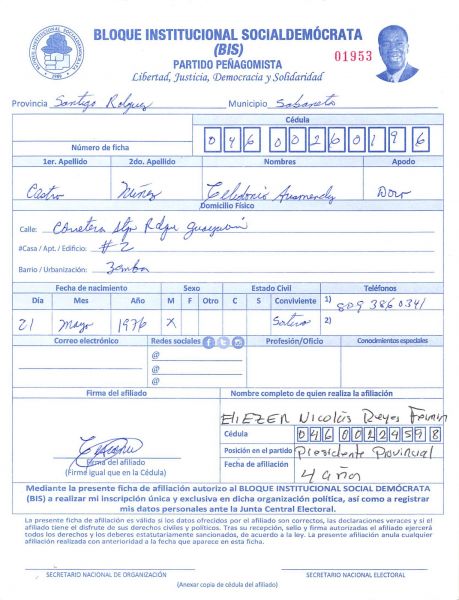 BLOQUE INSTITUCIONAL SOCIALDEMÓCRATA
(BIS)
PARTIDO PEÑAGOMISTA
Libertad, Justicia, Democracia y Solidaridad
01953
Provincia Santigo Rdguez Municipio Sabaneta
Cédula
Número de ficha 046 0026019 6
1er. Apellido 2do. Apellido Nombres Apodo
Castro Núñez Celedonio
Domicilio Físico
Calle: Carretera Stgo Rdgz Guayubín
#Casa / Apt. / Edificio: #2
Barrio / Urbanización: Zamba
Fecha de nacimiento Sexo Estado Civil Teléfonos
Día Mes Año M F Otro C S Conviviente 1) 809 386 0341
21 Mayo 1976 X Soltero 2)
Correo electrónico Redes sociales Profesión/Oficio Conocimientos especiales
@
@
@
Firma del afiliado Nombre completo de quien realiza la afiliación
EliEZER Nicolás Reyes Fermin
Cédula 046 0022459 8
Posición en el partido Presidente Provincial
Firma del afiliado
(Firme igual que en la Cédula)
Fecha de afiliación 4 años
Mediante la presente ficha de afiliación autorizo al BLOQUE INSTITUCIONAL SOCIAL DEMÓCRATA
(BIS) a realizar mi inscripción única y exclusiva en dicha organización política, así como a registrar
mis datos personales ante la Junta Central Electoral.
La presente ficha de afiliación es válida si los datos ofrecidos por el afiliado son correctos, las declaraciones veraces y si el
afiliado tiene el disfrute de sus derechos civiles y políticos. Tras su recepción, sello y firma autorizadas el afiliado ejercerá
todos los derechos y los deberes estatutariamente sancionados, de acuerdo a la ley. La presente afiliación anula cualquier
afiliación realizada con anterioridad a la fecha que aparece en esta ficha.
SECRETARIO NACIONAL DE ORGANIZACIÓN SECRETARIO NACIONAL ELECTORAL
(Anexar copia de cédula del afiliado)